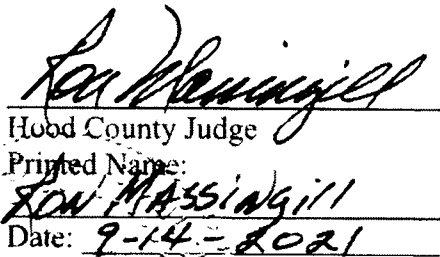 Ron Massingill
Hood County Judge
Printed Name:
RON MASSINGill
Date: 9-14-2021